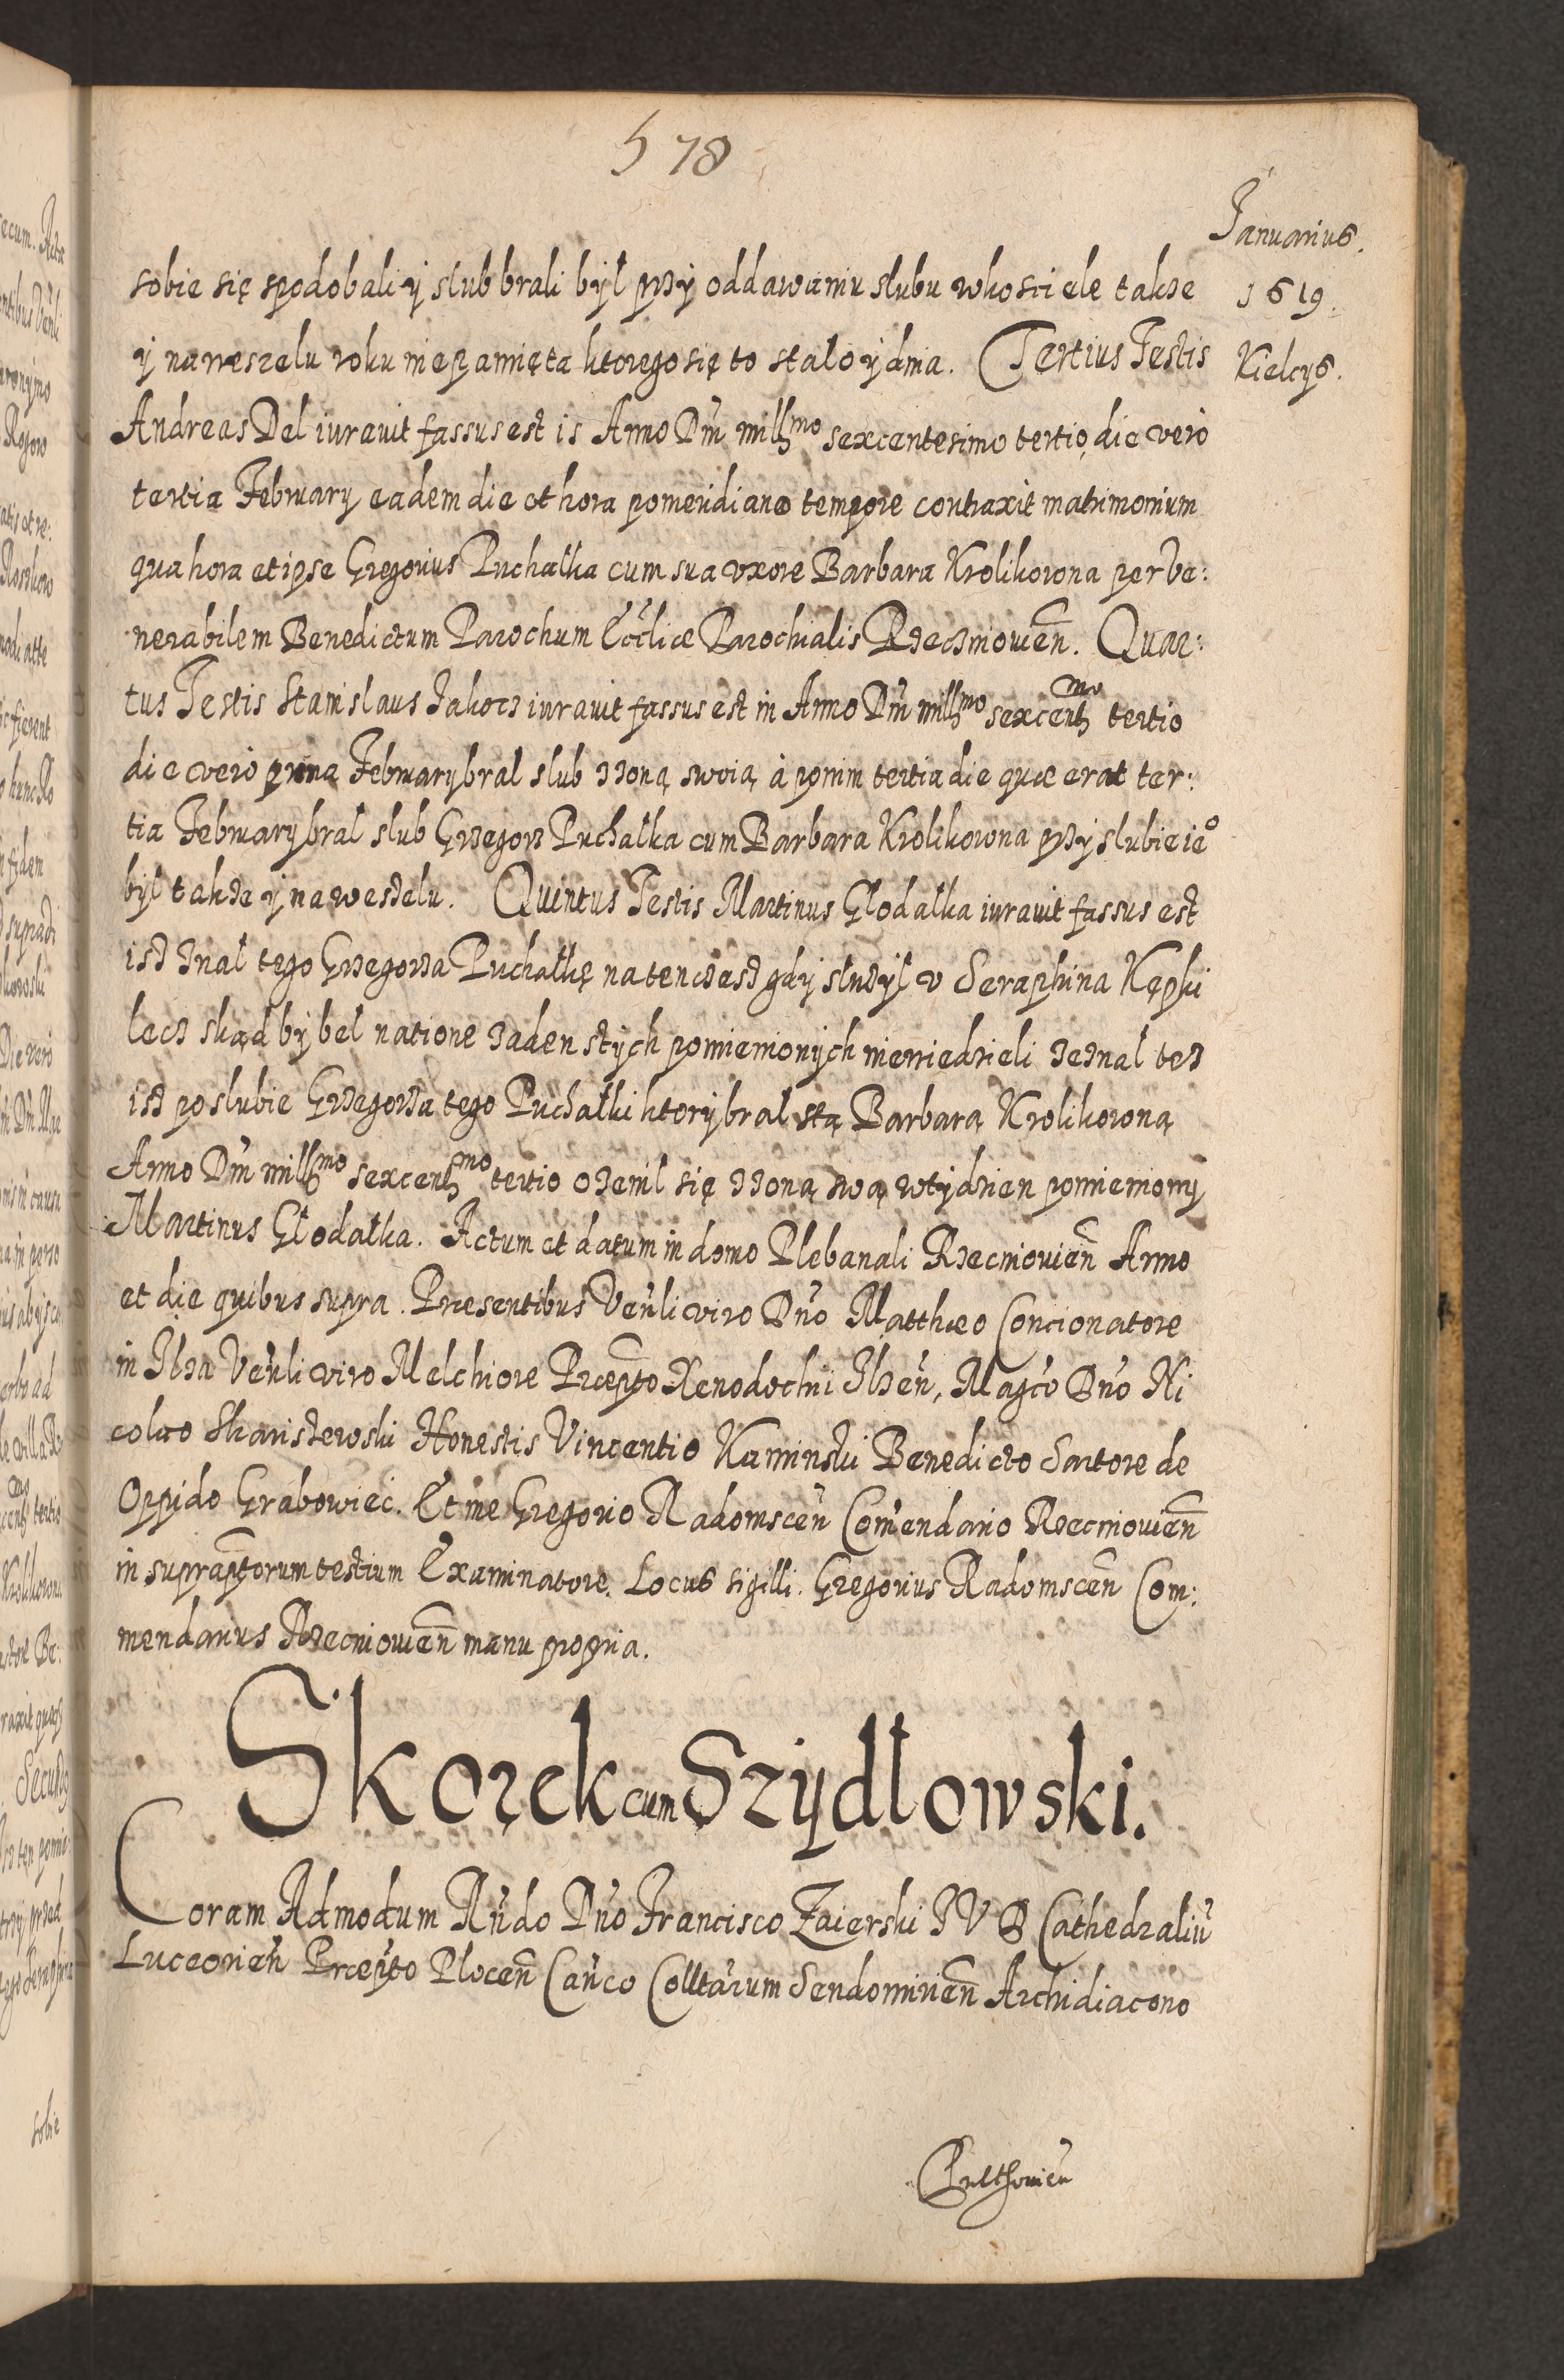 578
Januarius.
1619.
Kielcys.
sobie się spodobali y slub brali był przy oddawaniu slubu wkosciele takze
y naweszelu roku niepamięta ktorego się to stało y dnia. Tertius Testis
Andreas Del iuravit fassus est is Anno Dni millmo sexcentesimo tertio, die vero
tertia February eadem die et hora pomeridiano tempore contraxit matrimonium
qua hora et ipse Gregorius Puchałka cum sua vxore Barbara Krolikowna per Ve:
nerabilem Benedictum Parochum Ecclicæ Parochialis Rzeczniowien. Quar:
tus Testis Stanislaus Jakocz iuravit fassus est in Anno Dni millmo sexcentmo tertio
die vero prima February brał slub zzoną swoią à ponim tertia die quæ erat ter:
tia February brał slub Grzegorz Puchałka cum Barbara Krolikowna przy slubie ieo
był takze y na wezelu. Quintus Testis Martinus Głodałka iuravit fassus est
isz znal tego Grzegorza Puchałkę natenczasz gdy słuzył v Seraphina Kępki
lecz skąd by bel natione zaden stych pomienionych niewiedzieli zeznał tez
isz po slubie Grzegorza tego Puchałki ktory brał stą Barbarą Krolikowną
Anno Dni millmo sexcentmo tertio ozenił się zzoną swą wtydzien pomieniony
Martinus Głodałka. Actum et datum in domo Plebanali Rzecniowien Anno
et die quibus supra. Præsentibus Venli viro Dno Matthæo Concionatore
in Ilza Venli viro Melchiore Præpto Xenodochii Ilzen, Magco Dno Ni
colao Skariszewski Honestis Vincentio Kaminski Benedicto Sartore de
Oppido Grabowiec. Et me Gregorio Radomscen Comendario Rzecniowien
in supraptorum testium Examinatore. Locus sigilli. Gregorius Radomscen Com:
mendarius Rzecniowien manu propria.
Skorek cum Szydłowski.
Coram Admodum Rndo Dno Francisco Zaierski I V D Cathedraliu
Luceorien Præpto Plocen Canco Colltarum Sendomirien Archidiacono
Pulthovien